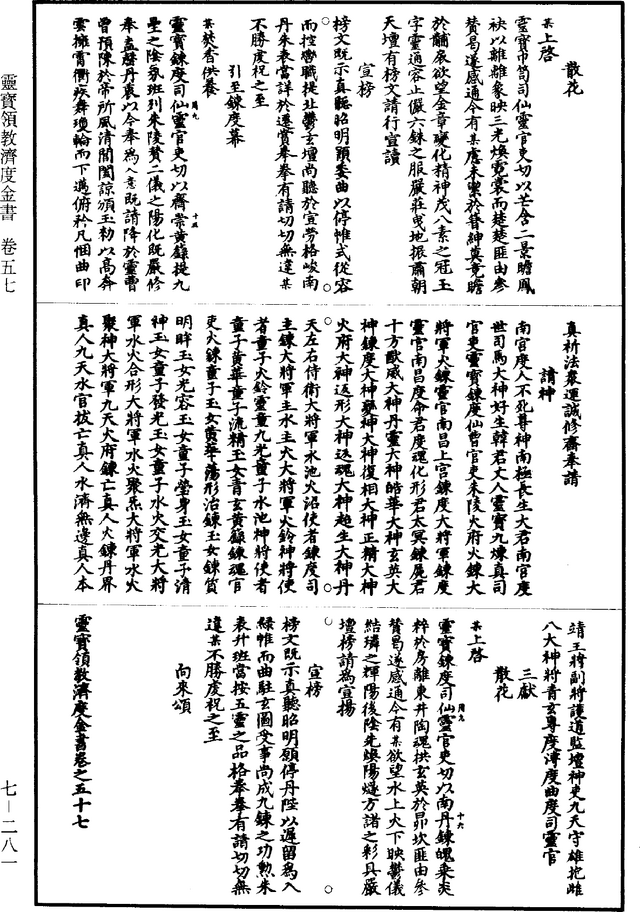 靈寶領教濟度金書 卷五七
七—二八一
散花
某上啓
靈寶巾笥司仙靈官吏切以芒含二景瞻鳳
袂以離離象映三光煥霓裳而楚楚匪由參
贊曷遂感通今有某應未禦於簪紳莫竟瞻
於黼扆欲望金章變化精神茂八素之冠玉
字靈通容止儼六銖之服嚴莊曳地振肅朝
天壇有榜文請行宣讀
宣榜
榜文既示真聽昭明願委曲以停帷式從容
而控轡職提北鬱玄壇尚聽於宣勞格峻南
丹朱表當詳於遷賞拳拳有請切切無違某
不勝虔祝之至
引至鍊度幕
某焚香供養
靈寶鍊度司仙靈官吏切以齋崇黃籙提九
聖之陰氛班列朱陵贊二儀之陽化既嚴修
奉盍罄丹衷以今奉爲入意既請降於靈曹
曾預陳於帝所風清閶闔諒頒玉勑以高奔
雲擁霄衢疾舞瓊輪而下邁俯矜凡悃曲印
真祈法衆運誠修齋奉請
請神
南宮度人不死尊神南極長生大君南宮度
世司馬大神好生韓君丈人靈寶九煉真司
官吏靈寶鍊度仙曹官吏朱陵火府火鍊大
將軍火鍊靈官南昌上宮鍊度大將軍鍊度
靈官南昌度命君度魂化形君太冥鍊魔君
十方獸威大神丹靈大神皓華大神玄英大
神鍊度大神孽神大神復相大神正精大神
火府大神返形大神返魂大神超生大神丹
天左右侍衛大將軍水池火沼使者鍊度司
主鍊大將軍主水主火大將軍火鈴神將使
者童子火鈴靈童九光童子水池神將使者
童子黃華童子流精玉女青玄黃籙鍊魂官
吏火鍊童子玉女黃華蕩形沿鍊玉女鍊質
明眸玉女光容玉女童子瑩身玉女童子清
神玉女童子發光玉女童子水火交光大將
軍水火合形大將軍水火聚炁大將軍水火
聚神大將軍九天火府鍊亡真人火鍊丹界
真人九天水官拔亡真人水濟無邊真人本
靖王將副將護道監壇神吏九天守雄抱雌
八大神將青玄專度溥度曲度司靈官
三獻
散花
某上啓
靈寶鍊度司仙靈官吏切以南丹鍊魄乘炎
粹於房離東井陶魂拱玄英於昴坎匪由參
贊曷遂感通今有某欲望水上火下映鬱儀
結璘之輝陽後陰先煥陽燧方諸之彩具嚴
壇榜請爲宣揚
宣榜
榜文既示真聽昭明願停丹陛以遲留爲入
綠帷而曲駐玄圖受事尚成九鍊之功勲朱
表升班當按五靈之品格拳拳有請切切無
違某不勝虔祝之至
向來頌
靈寶領教濟度金書卷之五十七